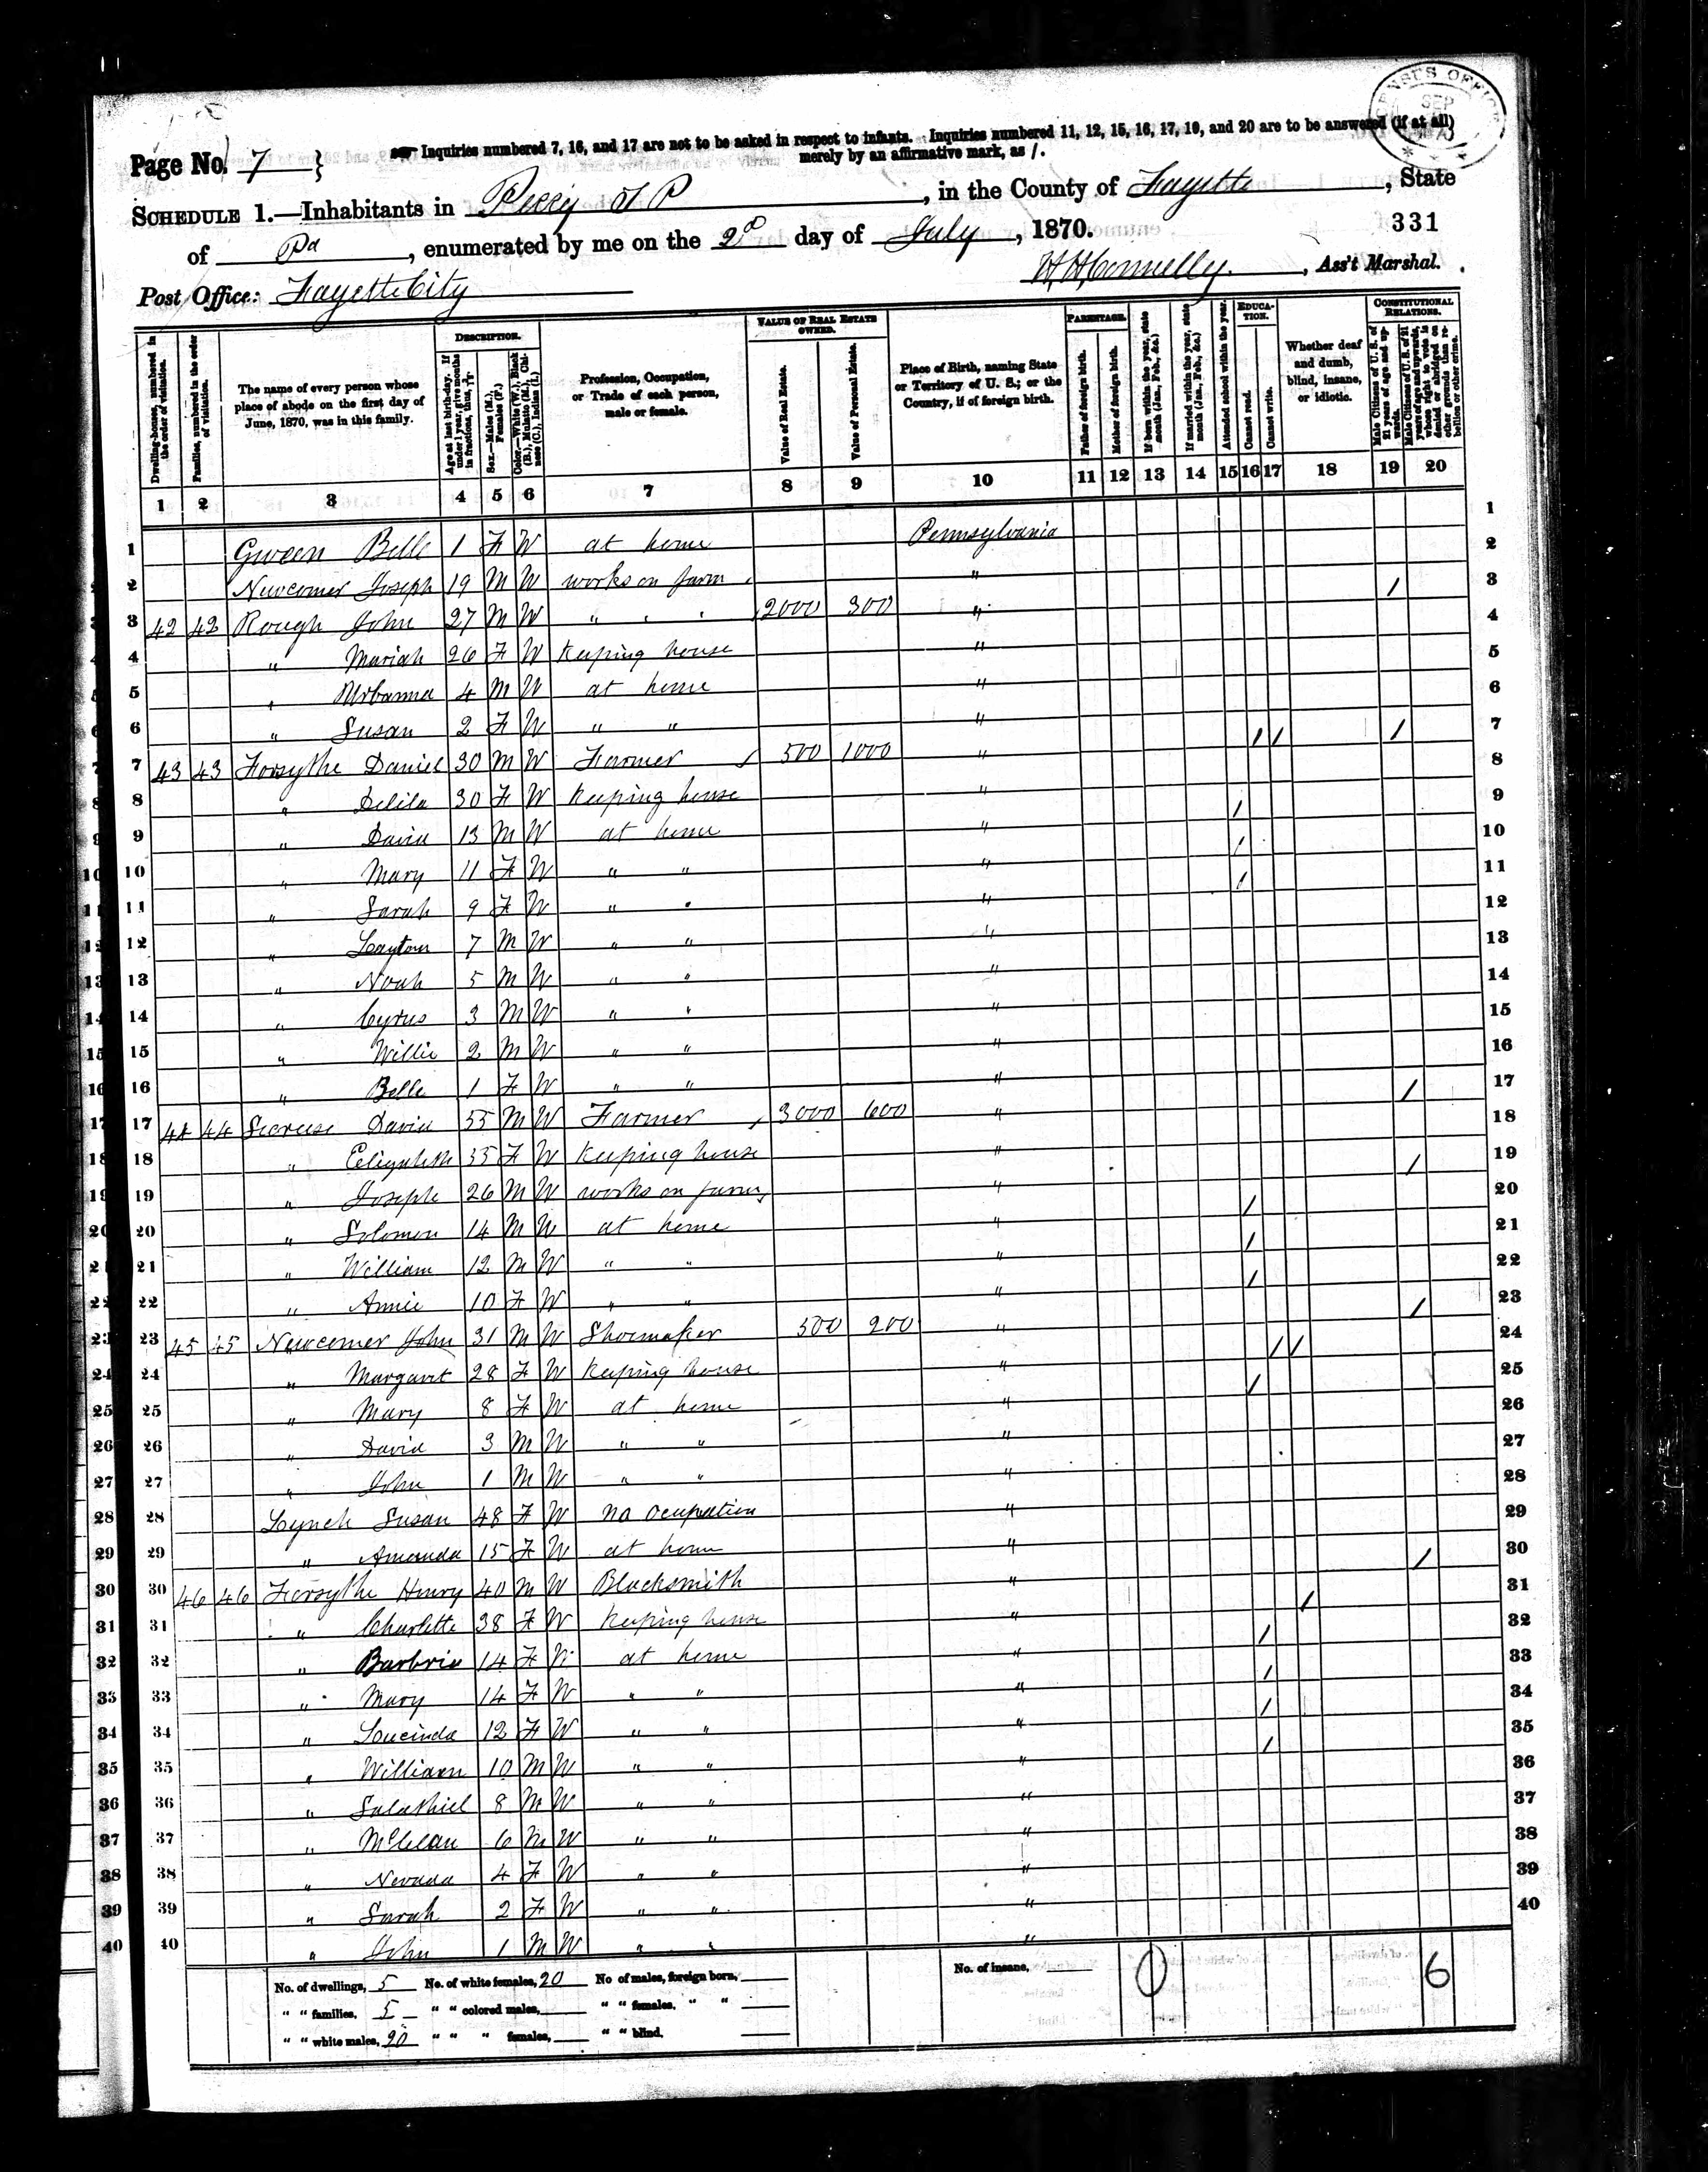 CENSUS OFFICE SEP
Inquiries numbered 7, 16, and 17 are not to be asked in respect to infants. Inquiries numbered 11, 12, 15, 16, 17, 19, and 20 are to be answered (if at all)
merely by an affirmative mark, as /.
Page No. 7
Schedule 1.—Inhabitants in Perry T P, in the County of Fayette, State
of Pa, enumerated by me on the 2d day of July, 1870. 331
Post Office: Fayette City H H Connelly, Ass't Marshal.
Dwelling-houses, numbered in the order of visitation.
Families, numbered in the order of visitation.
The name of every person whose place of abode on the first day of June, 1870, was in this family.
Description.
Age at last birth-day. If under 1 year, give months in fractions, thus, 3/12
Sex.—Males (M.), Females (F.)
Color.—White (W.), Black (B.), Mulatto (M.), Chinese (C.), Indian (I.)
Profession, Occupation, or Trade of each person, male or female.
Value of Real Estate owned.
Value of Real Estate.
Value of Personal Estate.
Place of Birth, naming State or Territory of U. S.; or the Country, if of foreign birth.
Parentage.
Father of foreign birth.
Mother of foreign birth.
If born within the year, state month (Jan., Feb., &c.)
If married within the year, state month (Jan., Feb., &c.)
Attended school within the year.
Education.
Cannot read.
Cannot write.
Whether deaf and dumb, blind, insane, or idiotic.
Constitutional Relations.
Male Citizens of U. S. of 21 years of age and upwards.
Male Citizens of U. S. of 21 years of age and upwards, whose right to vote is denied or abridged on other grounds than rebellion or other crime.
1 2 3 4 5 6 7 8 9 10 11 12 13 14 15 16 17 18 19 20
1 Belle 1 F W at home Pennsylvania
2 Newcomer Joseph 19 M W works on farm "
3 42 42 Rough John 27 M W " " " 2000 300 " /
4 " Mariah 26 F W Keeping house "
5 " 4 M W at home "
6 " Susan 2 F W " " "
7 43 43 Forsythe Daniel 30 M W Farmer 500 1000 " / / /
8 " Delila 30 F W Keeping house "
9 " David 13 M W at home " /
10 " Mary 11 F W " " " /
11 " Sarah 9 F W " " " /
12 " Layton 7 M W " " "
13 " Noah 5 M W " " "
14 " Cyrus 3 M W " " "
15 " Willie 2 M W " " "
16 " Belle 1 F W " " "
17 44 44 David 55 M W Farmer 3000 600 " /
18 " Elizabeth 55 F W Keeping house "
19 " Joseph 26 M W works on farm " /
20 " Solomon 14 M W at home " /
21 " William 12 M W " " " /
22 " Annie 10 F W " " " /
23 45 45 Newcomer John 31 M W Shoemaker 500 200 " /
24 " Margaret 28 F W Keeping house " / /
25 " Mary 8 F W at home " /
26 " David 3 M W " " "
27 " John 1 M W " " "
28 Lynch Susan 48 F W no ocupation "
29 " Amanda 15 F W at home "
30 46 46 Forsythe Henry 40 M W Blacksmith " /
31 " Charlette 38 F W Keeping house " /
32 " 14 F W at home " /
33 " Mary 14 F W " " " /
34 " Lucinda 12 F W " " " /
35 " William 10 M W " " " /
36 " Salathiel 8 M W " " "
37 " McClean 6 M W " " "
38 " Nevada 4 F W " " "
39 " Sarah 2 F W " " "
40 " John 1 M W " " "
No. of dwellings, 5 No. of white females, 20 No. of males, foreign born, No. of insane, 0 6
" " families, 5 " " colored males, " " females, " "
" " white males, 20 " " " females, " " blind,